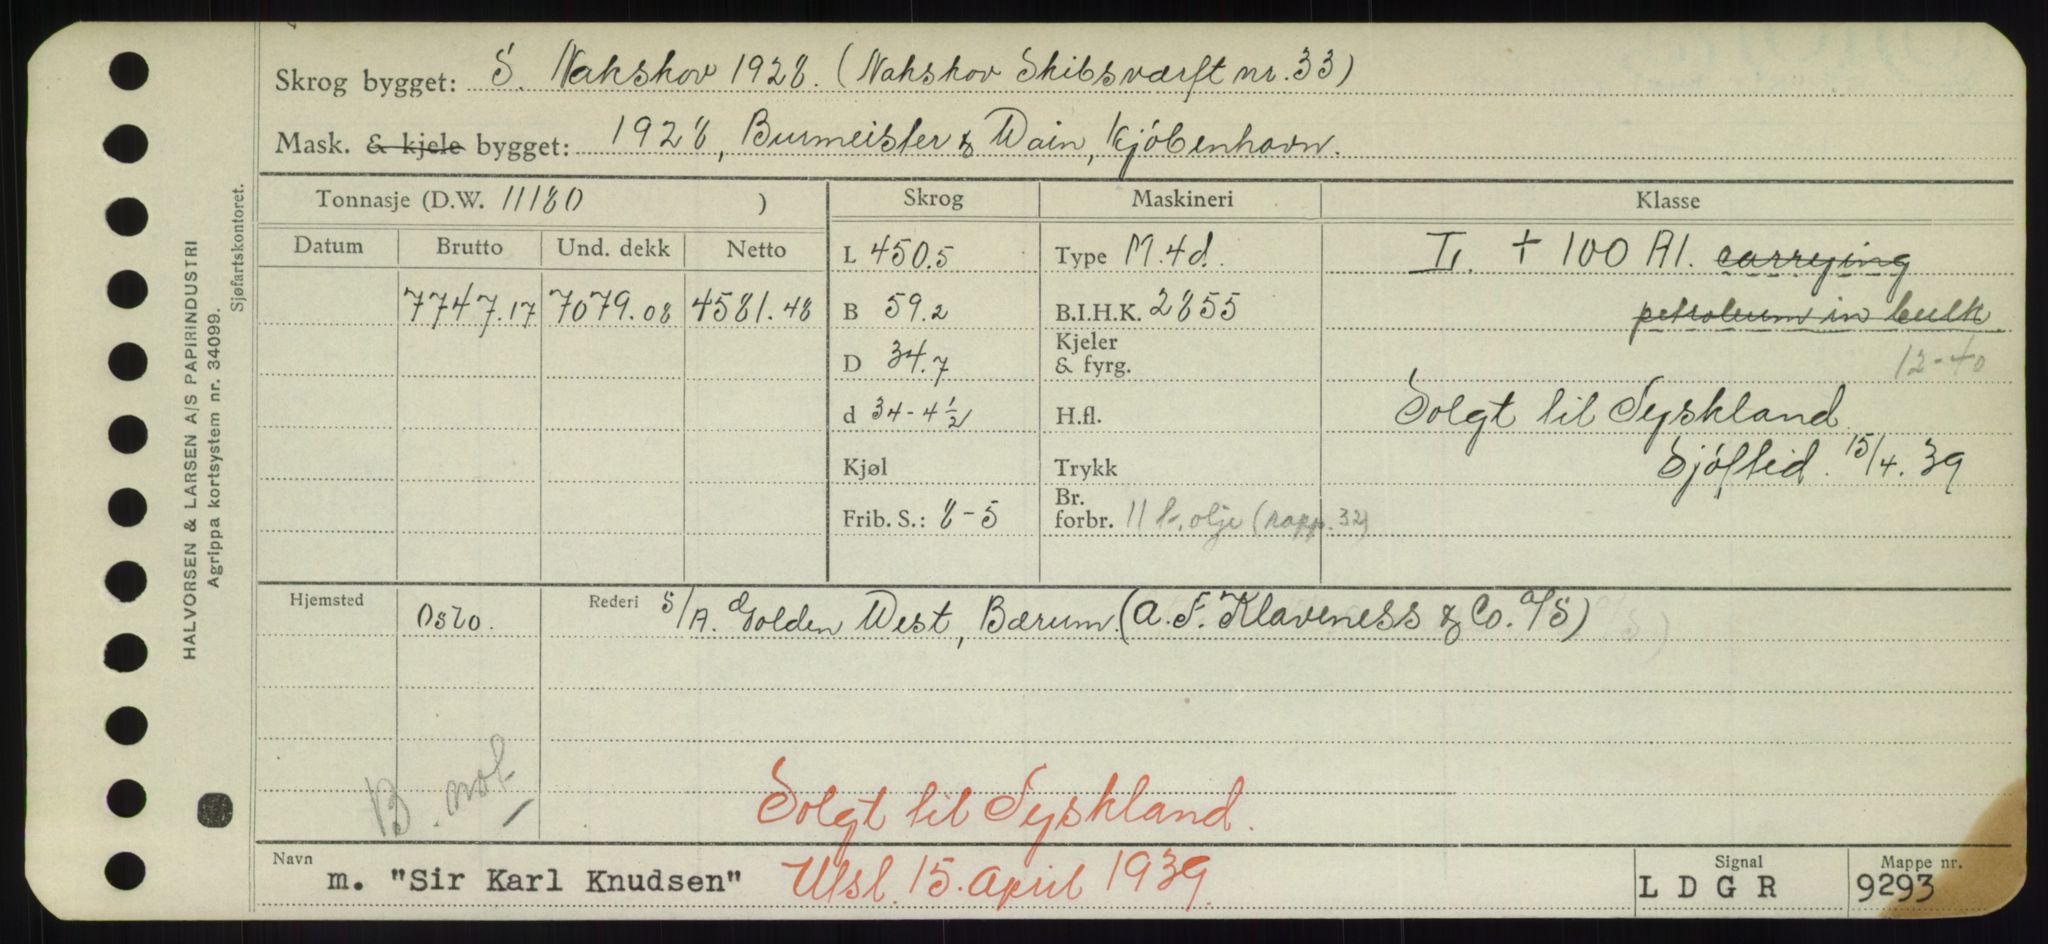 Skrog bygget: S. Nakskov 1928. (Nakskov Skibsværft nr. 33)
Mask. & kjele bygget: 1928, Burmeister & Wain, Kjöbenhavn.
HALVORSEN & LARSEN A/S PAPIRINDUSTRI
Agrippa kortsystem nr. 34099.
Sjøfartskontoret.
Tonnasje (D.W. 11180 ) Skrog Maskineri Klasse
Datum Brutto Und. dekk Netto
L 450.5 Type M. 4d. L. + 100 A1. carrying
7747.17 7079.08 4581.48 B 59.2 B.I.H.K. 2855 petroleum in bulk
12-40
D 34.7 Kjeler & fyrg.
d 34-4½ H.fl. Solgt til Tyskland
Kjøl Trykk Sjöftid. 15/4. 39
Frib. S.: 8-5 Br. forbr. 11 t. olje (rapp. 32)
Hjemsted Oslo. Rederi S/A. Golden West, Bærum. (A. F. Klaveness & Co. A/S)
B. not
Solgt til Tyskland.
Navn m. "Sir Karl Knudsen" Utsl. 15. april 1939. Signal LDGR Mappe nr. 9293